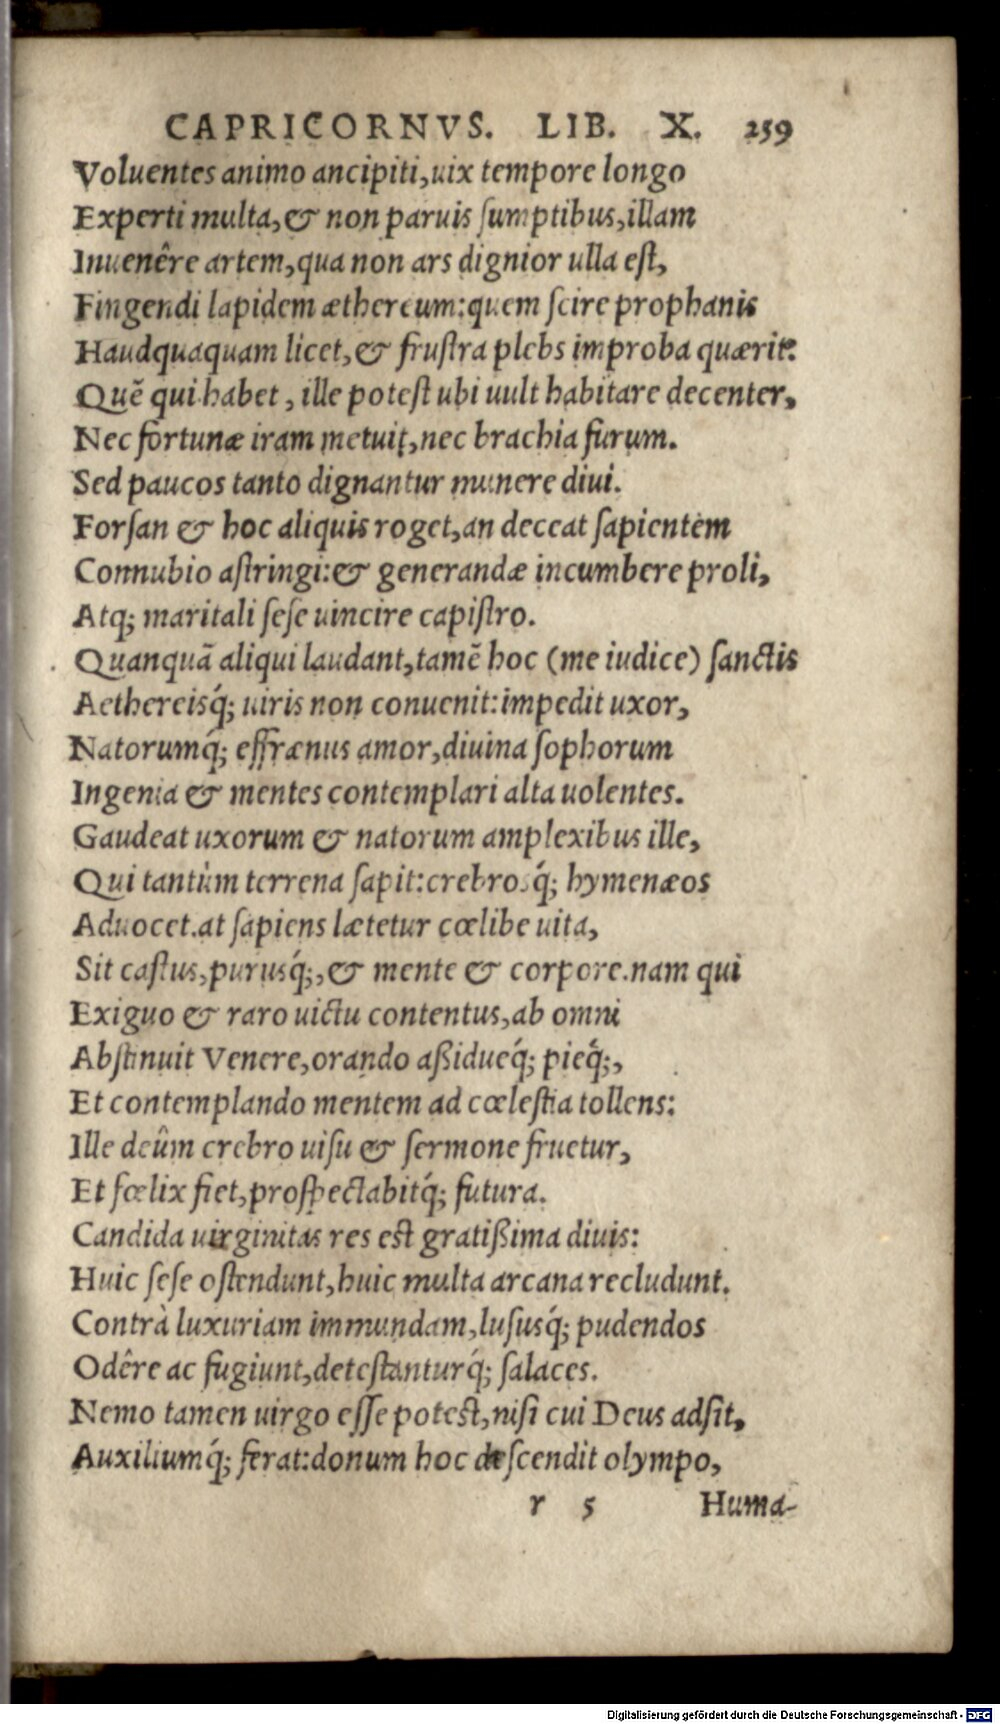 CAPRICORNVS. LIB. X. 259
Voluentes animo ancipiti,uix tempore longo
Experti multa,& non paruis ſumptibus,illam
Inuenêre artem,qua non ars dignior ulla eſt,
Fingendi lapidem æthereum:quem ſcire prophanis
Haudquaquam licet,& fruſtra plebs improba quærit:
Quẽ qui habet, ille poteſt ubi uult habitare decenter,
Nec fortunæ iram metuit,nec brachia furum.
Sed paucos tanto dignantur munere diui.
Forſan & hoc aliquis roget,an deceat ſapientem
Connubio aſtringi:& generandæ incumbere proli,
Atq; maritali ſeſe uincire capiſtro.
Quanquã aliqui laudant,tamẽ hoc (me iudice) ſanctis
Aethereisq́; uiris non conuenit:impedit uxor,
Natorumq́; effrænus amor,diuina ſophorum
Ingenia & mentes contemplari alta uolentes.
Gaudeat uxorum & natorum amplexibus ille,
Qui tantùm terrena ſapit:crebrosq́; hymenæos
Aduocet.at ſapiens lætetur cœlibe uita,
Sit caſtus,purusq́;,& mente & corpore.nam qui
Exiguo & raro uictu contentus,ab omni
Abſtinuit Venere,orando aßidueq́; pieq́;,
Et contemplando mentem ad cœleſtia tollens:
Ille deûm crebro uiſu & ſermone fruetur,
Et fœlix fiet,proſpectabitq́; futura.
Candida uirginitas res eſt gratißima diuis:
Huic ſeſe oſtendunt,huic multa arcana recludunt.
Contrà luxuriam immundam,luſusq́; pudendos
Odêre ac fugiunt,deteſtanturq́; ſalaces.
Nemo tamen uirgo eſſe poteſt,niſi cui Deus adſit,
Auxiliumq́; ferat:donum hoc deſcendit olympo,
r 5 Huma-
Digitalisierung gefördert durch die Deutsche Forschungsgemeinschaft - DFG